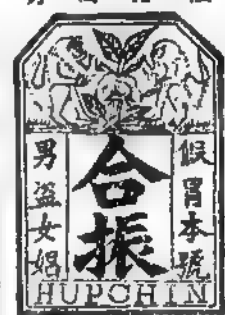 假冒本號
合振
男盜女娼
HUPCHIN